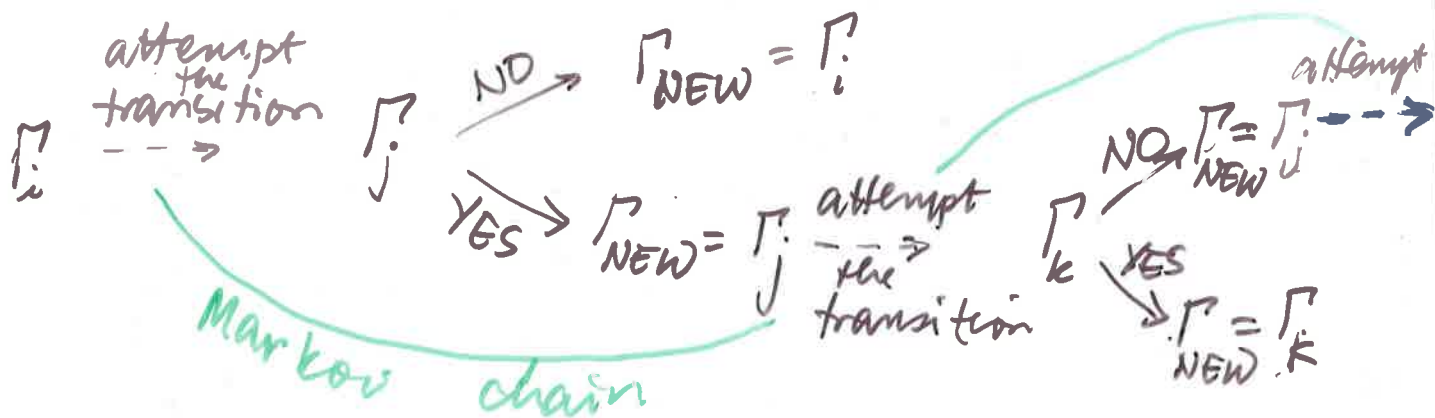 attempt
the
transition
Γi
Γj
NO
ΓNEW = Γi
YES
ΓNEW = Γj
attempt
the
transition
Γk
NO
ΓNEW = Γj
attempt
YES
ΓNEW = Γk
Markov chain